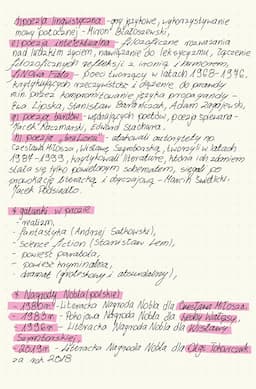 d) poezja lingwistyczna - gry językowe, wykorzystywanie
mowy potocznej - Miron Białoszewski,
e) poezja intelektualna - filozoficzne rozważania
nad ludzkim życiem, nawiązanie do leksyczmu, łączenie
filozoficznych refleksji z ironią i humorem,
f) Nowa Fala - poeci tworzący w latach 1968-1976,
krytykujących rzeczywistość i dążenie do prawdy
min. przez kompromitowanie języka propagandy -
Ewa Lipska, Stanisław Barańczak, Adam Zagajewski,
g) poezja bardów - wędrujących poetów, poezja śpiewana -
Jacek Kaczmarski, Edward Stachura,
h) poezja "bruLionu" - atakowali autorytety np.
Czesława Miłosza, Wisławę Szymborską, tworzyli w latach
1987-1999, krytykowali literaturę, która ich zdaniem
stała się tylko powielanym schematem, sięgali po
prowokację literacką i obyczajową - Marcin Świetlicki,
Jacek Podsiadło.
* gatunki w prozie
- realizm,
- fantastyka (Andrzej Sapkowski),
- science fiction (Stanisław Lem),
- powieść parabola,
- powieść kryminalna,
- dramat (groteskowy i absurdalny),
* Nagrody Nobla (polskie)
- 1980r. - Literacka Nagroda Nobla dla Czesława Miłosza
- 1983r. - Pokojowa Nagroda Nobla dla Lecha Wałęsy,
- 1996r. - Literacka Nagroda Nobla dla Wisławy
Szymborskiej,
- 2019r. - Literacka Nagroda Nobla dla Olgi Tokarczuk
za rok 2018